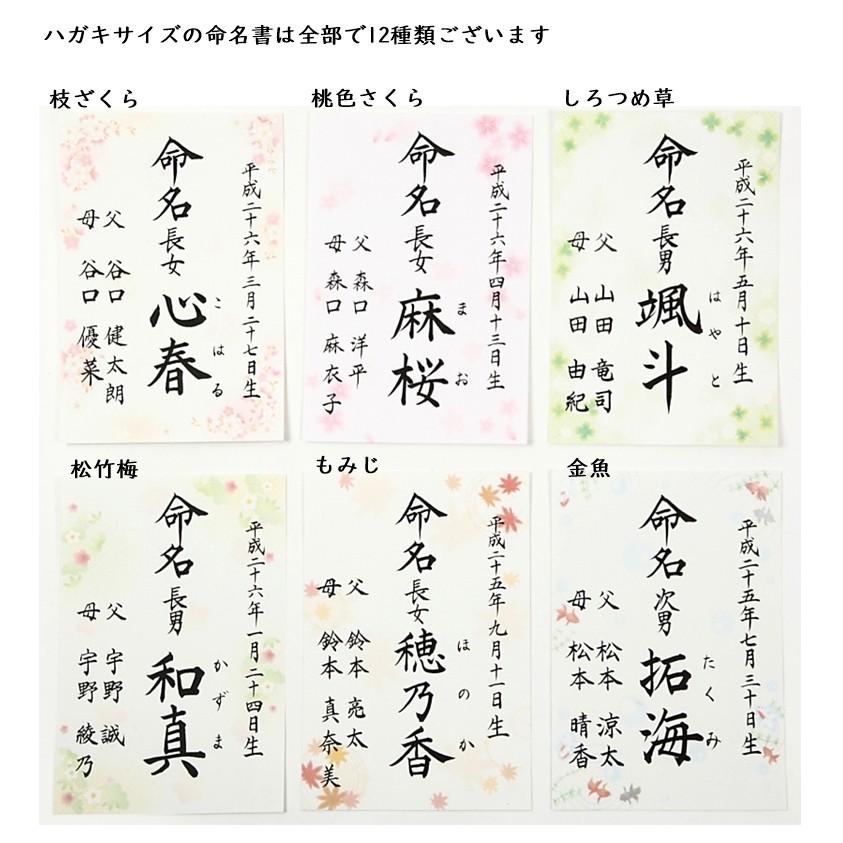 ハガキサイズの命名書は全部で12種類ございます
枝ざくら
平成二十六年三月二十七日生
命名 長女 心春
こはる
父 谷口 健太朗
母 谷口 優菜
桃色さくら
平成二十六年四月十三日生
命名 長女 麻桜
まお
父 森口 洋平
母 森口 麻衣子
しろつめ草
平成二十六年五月十日生
命名 長男 颯斗
はやと
父 山田 竜司
母 山田 由紀
松竹梅
平成二十六年一月二十四日生
命名 長男 和真
かずま
父 宇野 誠
母 宇野 綾乃
もみじ
平成二十五年九月十一日生
命名 長女 穂乃香
ほのか
父 鈴本 亮太
母 鈴本 真奈美
金魚
平成二十五年七月三十日生
命名 次男 拓海
たくみ
父 松本 涼太
母 松本 晴香